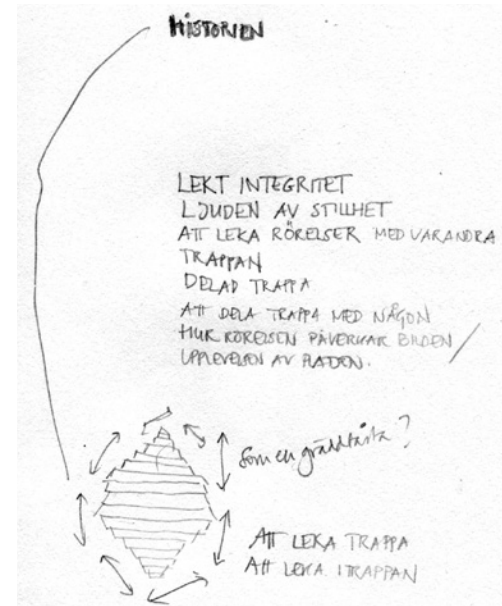 HISTORIEN
LEKT INTEGRITET
LJUDEN AV STILLHET
ATT LEKA RÖRELSER MED VARANDRA
TRAPPAN
DELAD TRAPPA
ATT DELA TRAPPA MED NÅGON
HUR RÖRELSEN PÅVERKAR BILDEN/
UPPLEVELSEN AV PLATSEN.
Som en gräddtårta?
ATT LEKA TRAPPA
ATT LEKA I TRAPPAN